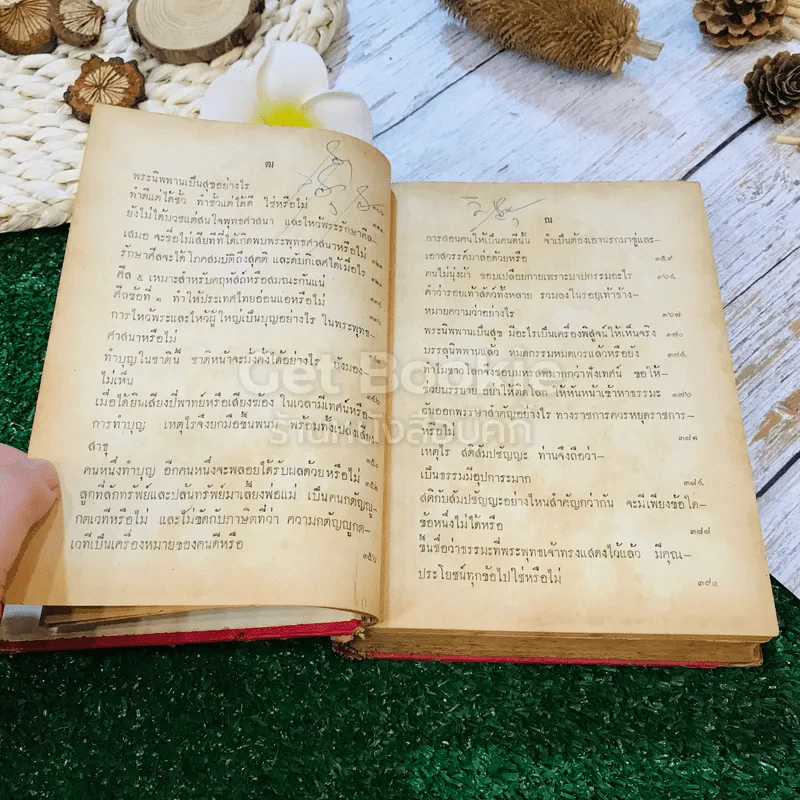 ฒ
พระนิพพานเป็นสุขอย่างไร
ทำดีแต่ได้ชั่ว ทำชั่วแต่ได้ดี ใช่หรือไม่
ยังไม่ได้บวชแต่สนใจพุทธศาสนา และไหว้พระรักษาศีล-
เสมอ จะชื่อไม่เสียทีที่ได้เกิดพบพระพุทธศาสนาหรือไม่
รักษาศีลจะได้โภคสมบัติถึงสุคติ และดับกิเลศได้เมื่อไร
ศีล ๕ เหมาะสำหรับคฤหัสถ์หรือสมณะกันแน่
ศีลข้อที่ ๑ ทำให้ประเทศไทยอ่อนแอหรือไม่
การไหว้พระและไหว้ผู้ใหญ่เป็นบุญอย่างไร ในพระพุทธ-
ศาสนาหรือไม่
ทำบุญในชาตินี้ ชาติหน้าจะมั่งคั่งได้อย่างไร ยังมอง-
ไม่เห็น
เมื่อได้ยินเสียงปี่พาทย์หรือเสียงฆ้อง ในเวลามีเทศน์หรือ-
การทำบุญ เหตุไรจึงยกมือขึ้นพนม พร้อมทั้งเปล่งเสียง-
สาธุ
คนหนึ่งทำบุญ อีกคนหนึ่งจะพลอยได้รับผลด้วยหรือไม่
ลูกที่ลักทรัพย์และปล้นทรัพย์มาเลี้ยงพ่อแม่ เป็นคนกตัญญู-
กตเวทีหรือไม่ และไม่ขัดกับภาษิตที่ว่า ความกตัญญูกต-
เวทีเป็นเครื่องหมายของคนดีหรือ
ณ
การสอนคนให้เป็นคนดีนั้น จำเป็นต้องเอานรกมาขู่และ-
เอาสวรรค์มาล่อด้วยหรือ ๓๕๙
คนไม่นุ่งผ้า ชอบเปลือยกายเพราะบาปกรรมอะไร ๓๖๔
คำว่ารอยเท้าสัตว์ทั้งหลาย รวมลงในรอยเท้าช้าง-
หมายความว่าอย่างไร ๓๖๗
พระนิพพานเป็นสุข มีอะไรเป็นเครื่องพิสูจน์ให้เห็นจริง ๓๗๐
บรรลุนิพพานแล้ว หมดกรรมหมดเวรแล้วหรือยัง ๓๗๔
ทำไมชาวโลกจึงชอบมหรสพมากกว่าฟังเทศน์ ขอให้-
ช่วยบรรยาย อย่าให้ติดโลก ให้หันหน้าเข้าหาธรรมะ ๓๗๖
วันออกพรรษาสำคัญอย่างไร ทางราชการควรหยุดราชการ-
หรือไม่ ๓๘๑
เหตุไร สติสัมปชัญญะ ท่านจึงถือว่า-
เป็นธรรมมีอุปการะมาก ๓๘๔
สติกับสัมปชัญญะอย่างไหนสำคัญกว่ากัน จะมีเพียงข้อใด-
ข้อหนึ่งไม่ได้หรือ ๓๘๗
ขึ้นชื่อว่าธรรมะที่พระพุทธเจ้าทรงแสดงไว้แล้ว มีคุณ-
ประโยชน์ทุกข้อไปใช่หรือไม่ ๓๙๐